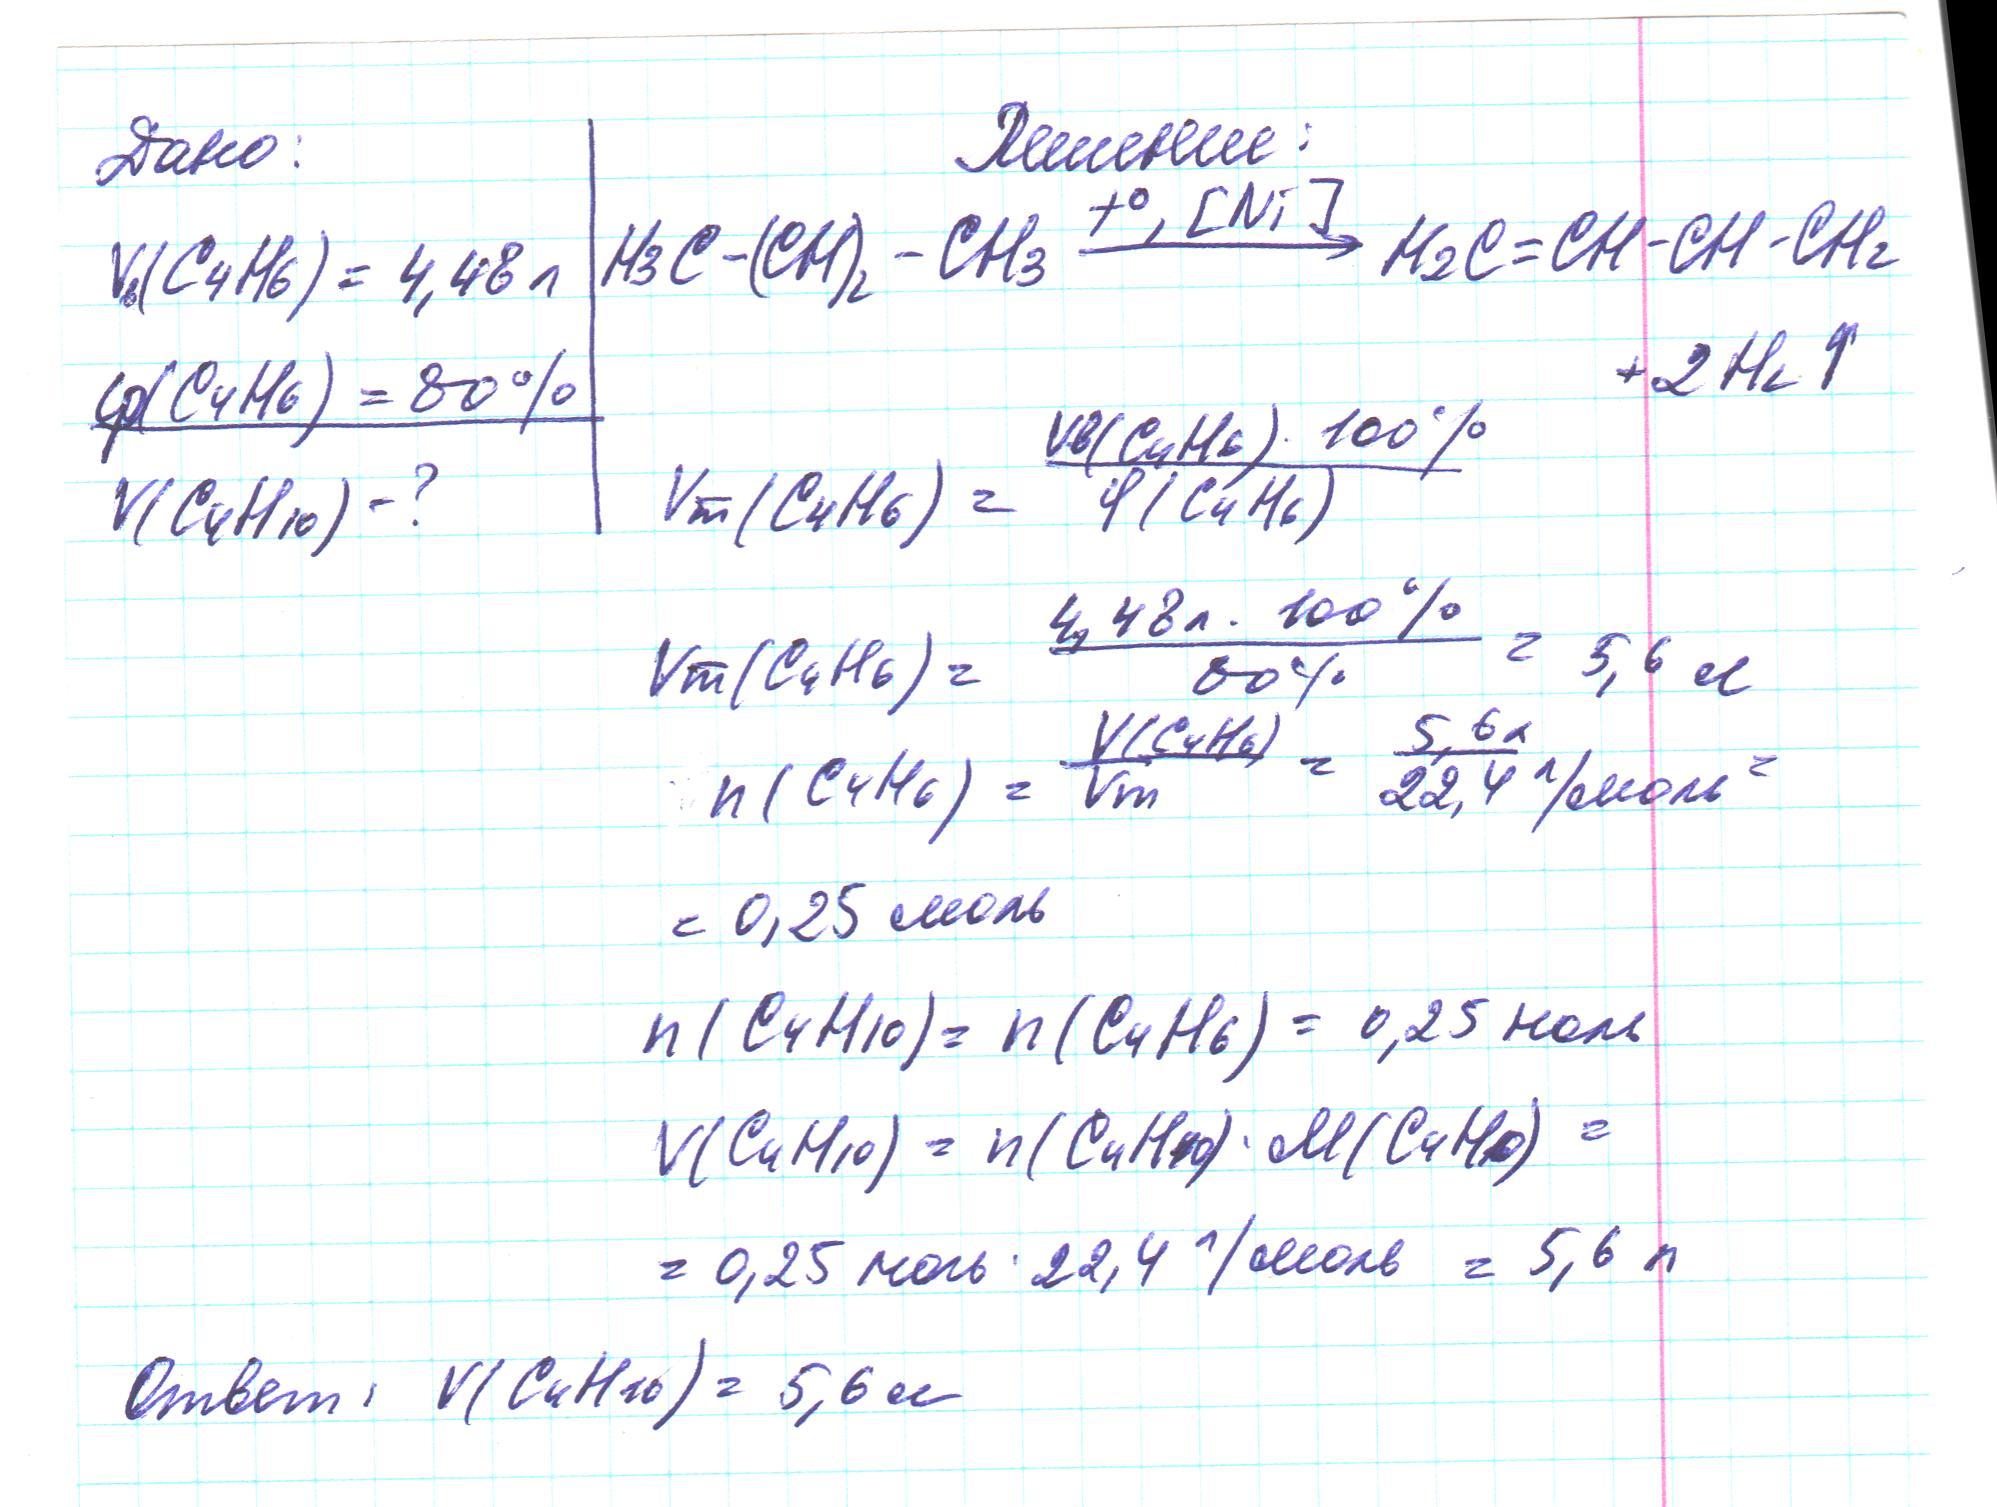 Дано:
Vв(C4H6) = 4,48 л
φ(C4H6) = 80%
V(C4H10) - ?
Решение:
H3C-(CH)2-CH3 t°, [Ni] → H2C=CH-CH-CH2
+ 2H2↑
Vт(C4H6) = Vв(C4H6) · 100% / φ(C4H6)
Vт(C4H6) = 4,48 л · 100% / 80% = 5,6 л
n(C4H6) = V(C4H6) / Vm = 5,6 л / 22,4 л/моль =
= 0,25 моль
n(C4H10) = n(C4H6) = 0,25 моль
V(C4H10) = n(C4H10) · M(C4H10) =
= 0,25 моль · 22,4 л/моль = 5,6 л
Ответ: V(C4H10) = 5,6 л